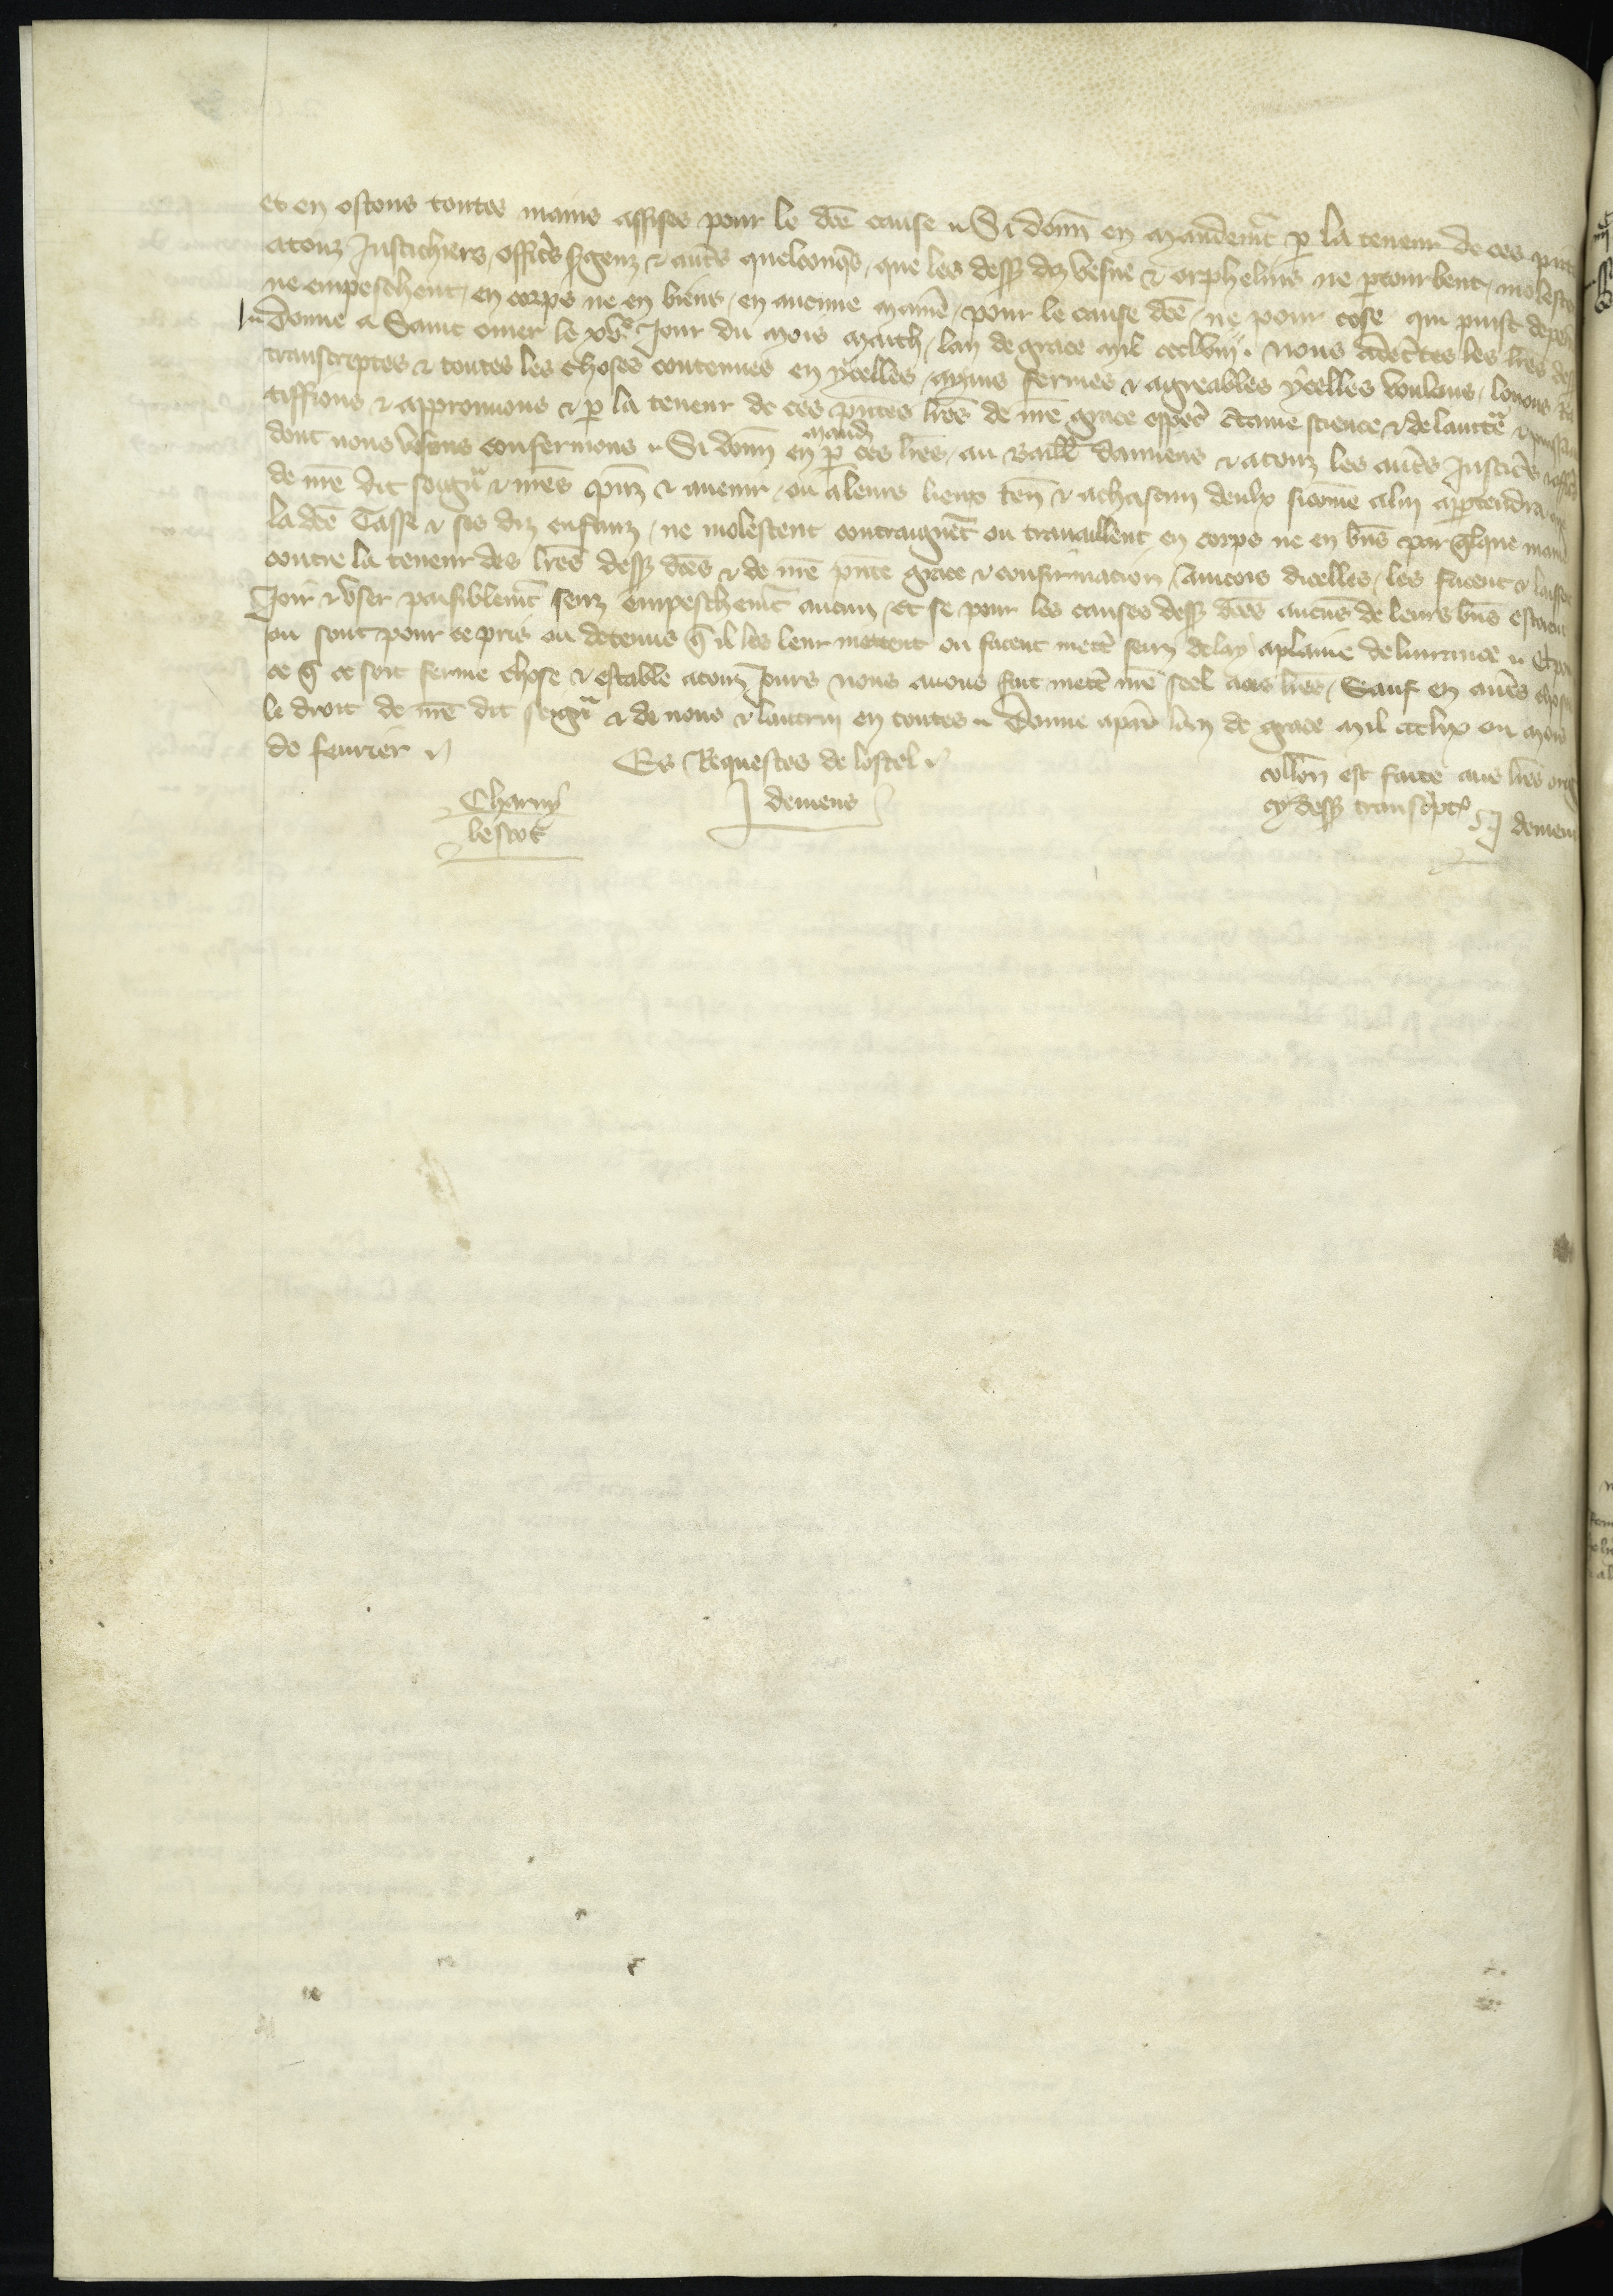 et en ostons toutes mains assises pour le dce cause. Si donn en mandemt p la teneur de ces pntes
a touz Justichiers, officrs sergenz & autrs quelconqs, que les dess dz vesue & orphelins ne ptourbent, molestent
ne empeschent, en corps ne en biens, en aucune manre, pour le cause dce, ne pour cose qui puist depen
Donne a Saint omer le xve Jour du mois march, lan de grace mil ccclviij. nous adecertes les lres dess
transcriptes & toutes les choses contenues en ycelles, ayans fermes & agreables ycelles voulons, louons, Ra
tiffions & approuuons & p la teneur de ces pntes lres de nre grace especl ctaine science & de lauctte & puissance
dont nous usons confermons. Si donn en mand p ces lres, au Bailli damiens & a touz les autrs Justicrs & officrs
de nre dit seigr & nres pnz & auenir, ou a leurs lieux ten & a chascun deulx sicome a lui aptendra que
la dce Tasse & ses diz enfanz, ne molestent contraignet ou trauaillent en corps ne en bns par qlque manre
contre la teneur des lres dess dces & de nre pnte grace & confirmacion, Aincois dicelles, les facent & laissent
Joir & user paisiblemt senz empeschemt aucun, Et se pour les causes dess dces aucus de leurs bns estoient
ou sont pour ce pris ou detenus q il les leur mettent ou facent mett senz delay a plaine deliurance. Et pour
ce q ce soit ferme chose & estable a touz Jours nous auons fait mett nre seel a ces lres, Sauf en autrs choses
le droit de nre dit seigr & de nous & lautrui en toutes. Donne a paris lan de grace mil ccclix ou mois
de feurier
Es Requestes de lostel
Charny
lescot
J demens
collon est faicte aus lres orig
cy dess transcptes
J demens